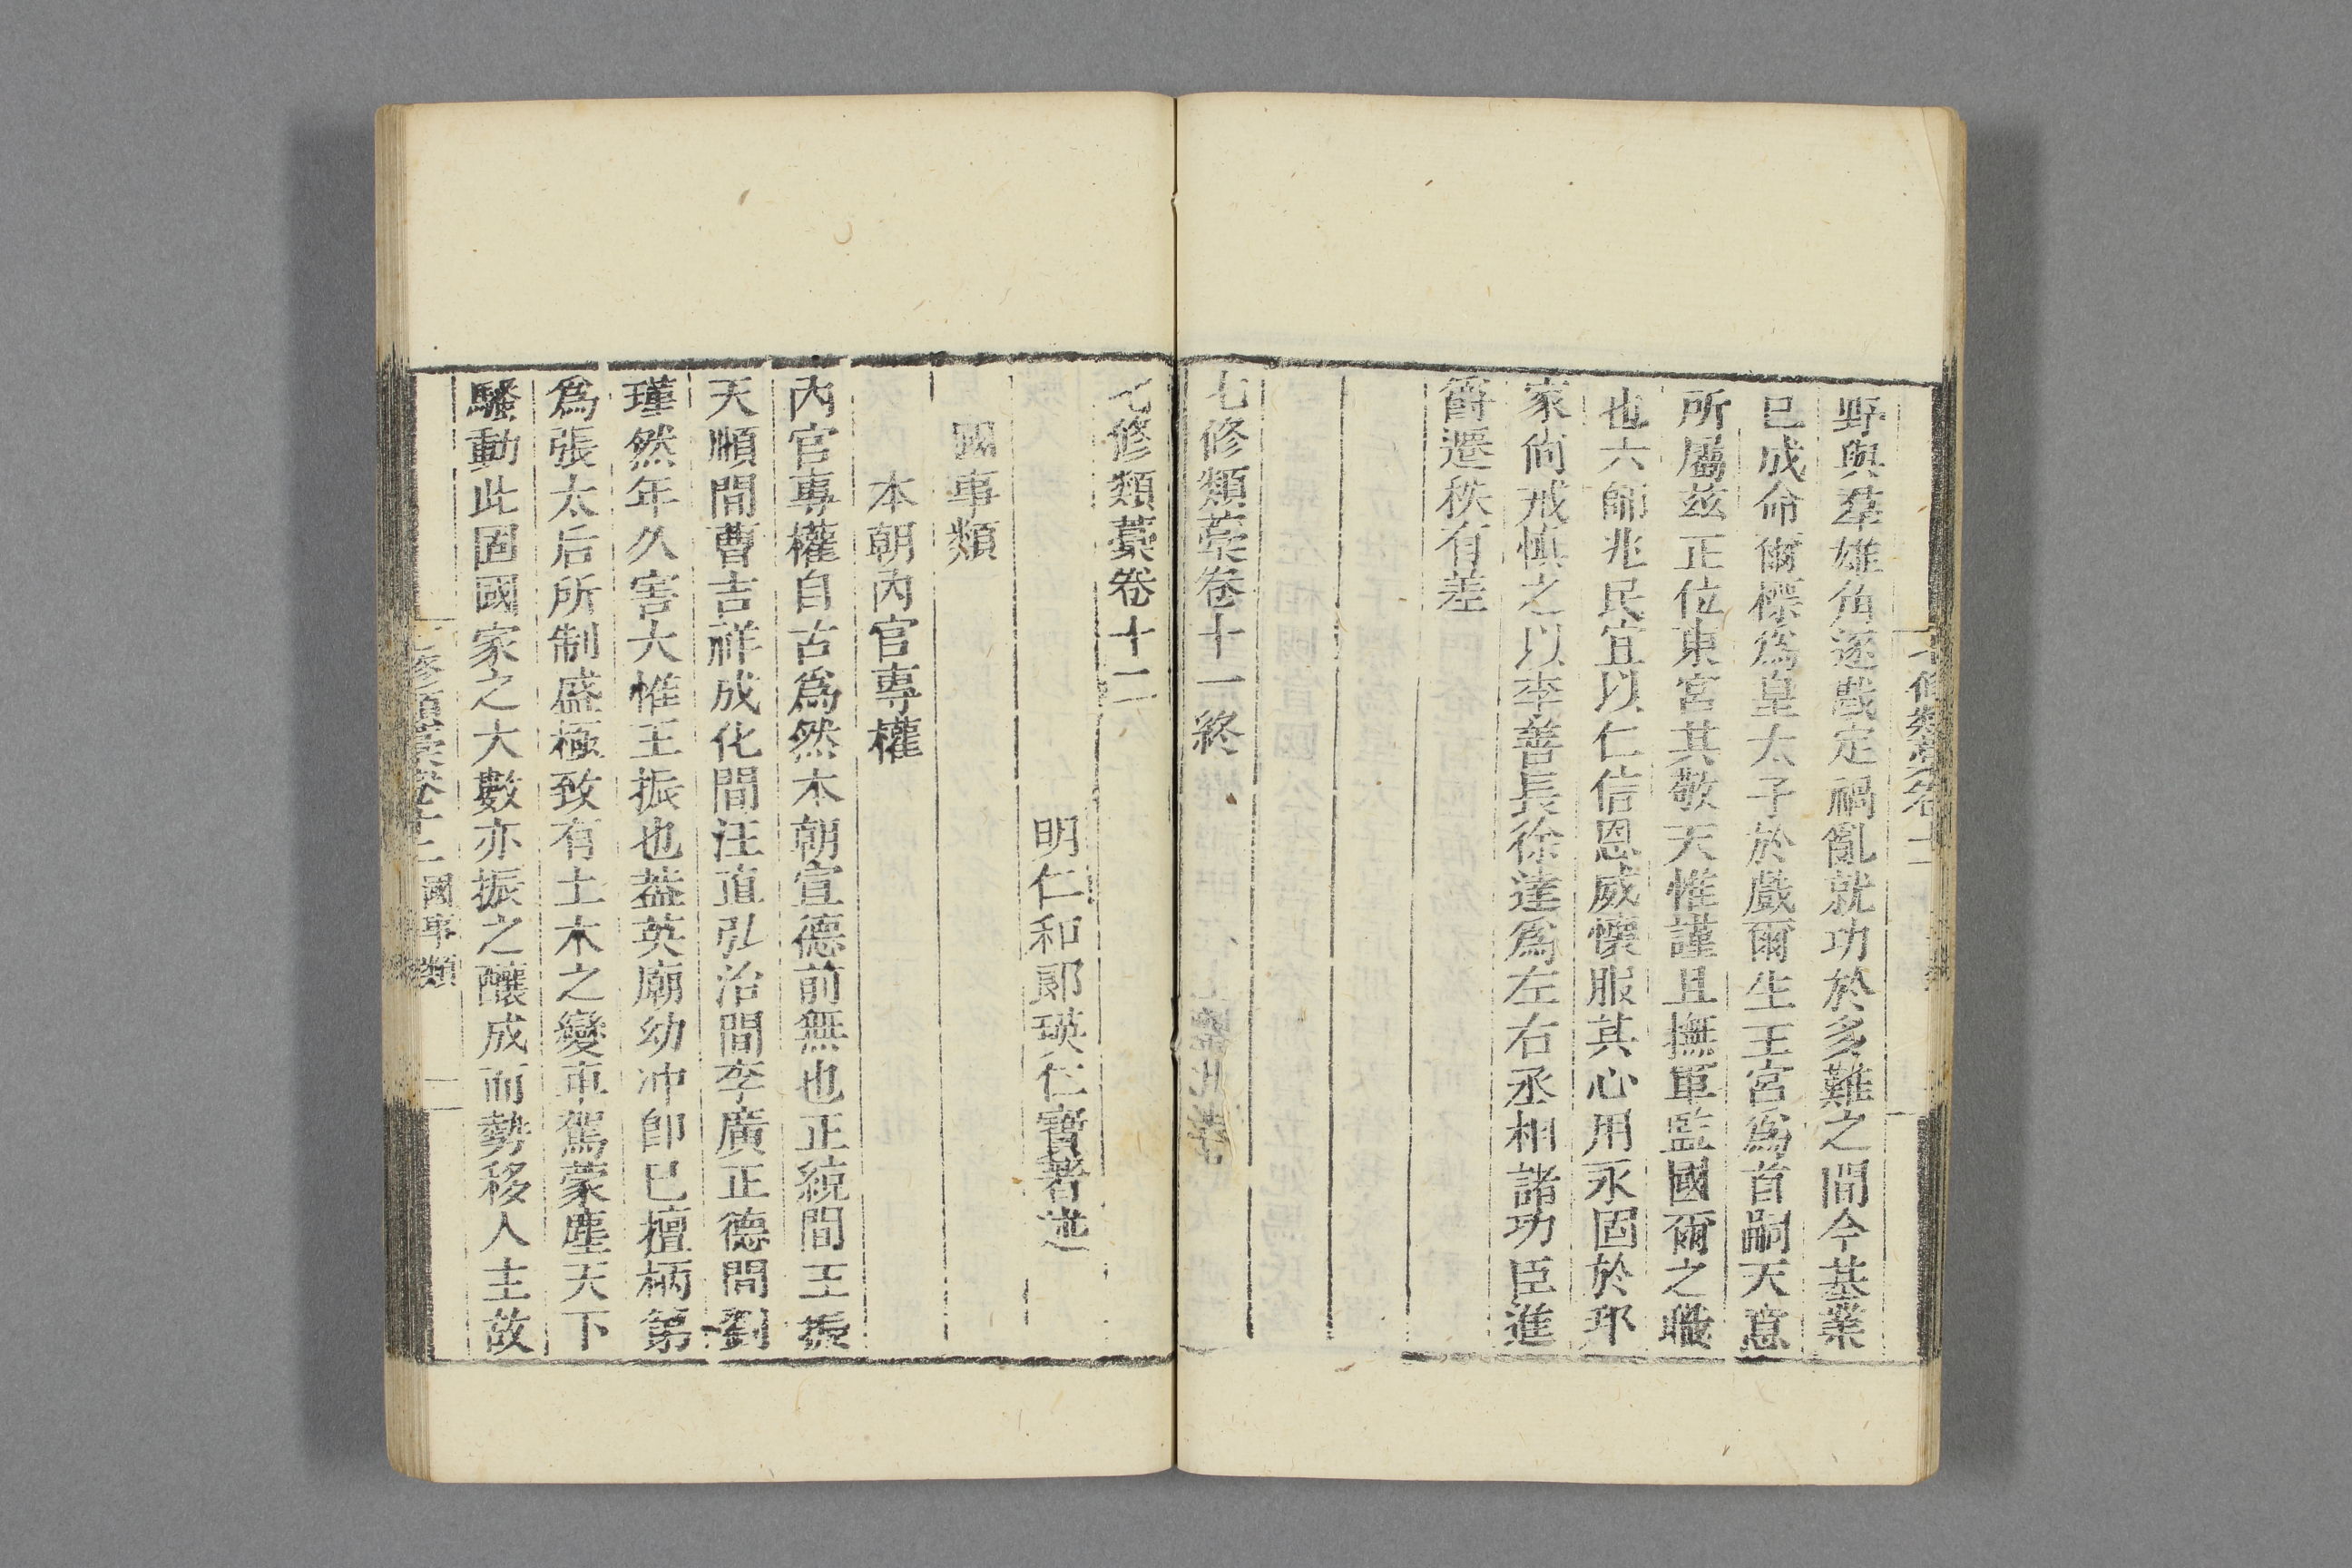 野與羣雄角逐戡定禍亂就功於多難之間今基業
已成命爾標爲皇太子於戲爾生王宮爲首嗣天意
所屬茲正位東宮其敬天惟謹且撫軍監國爾之職
也六師兆民宜以仁信恩威懷服其心用永固於邦
家尙戒愼之以李善長徐達爲左右丞相諸功臣進
爵遷秩有差
七修類藁卷十一終
七修類藁卷十二
明仁和郞瑛仁寶著述
國事類
本朝內官專權
內官專權自古爲然本朝宣德前無也正統間王振
天順間曹吉祥成化間汪直弘治間李廣正德間劉
瑾然年久害大惟王振也葢英廟幼冲卽已擅柄第
爲張太后所制盛極致有土木之變車駕蒙塵天下
騷動此固國家之大數亦振之釀成而勢移人主故
修類藁卷十二 國事類 一